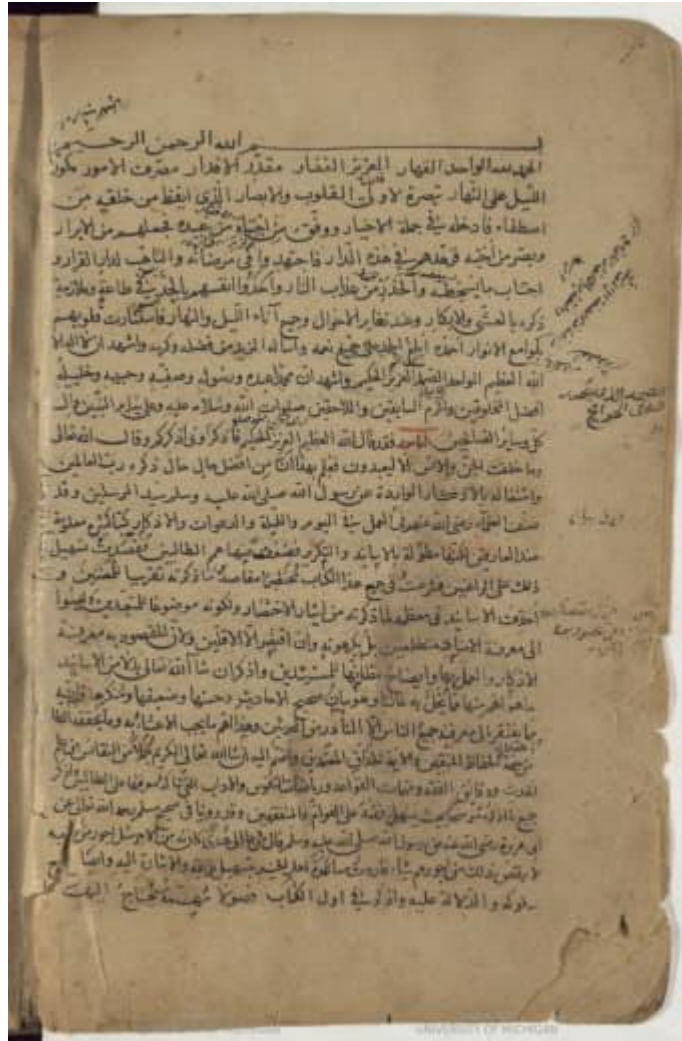 بسم الله الرحمن الرحيم
الحمد لله الواحد القهار العزيز الغفار مقدر الاقدار مصرف الامور مكور
الليل على النهار تبصرة لاولى القلوب والابصار الذى ايقظ من خلقه من
اصطفاه فادخله فى جملة الاخيار ووفق من اجتباه من عبيده فجعلهم من الابرار
وبصر من احبه فزهدهم فى هذه الدار فاجتهدوا فى مرضاته والتاهب لدار القرار و
اجتناب ما يسخطه والحذر من عذاب النار واخذوا انفسهم بالجد فى طاعته وملازمة
ذكره بالعشى والابكار وعند تغاير الاحوال وجميع آناء الليل والنهار فاستنارت قلوبهم
بلوامع الانوار احمده ابلغ الحمد على جميع نعمه واساله المزيد من فضله وكرمه واشهد ان لا اله الا
الله العظيم الواحد الصمد العزيز الحكيم واشهد ان محمدا عبده ورسوله وصفيه وحبيبه وخليله
افضل المخلوقين واكرم السابقين واللاحقين صلوات الله وسلامه عليه وعلى سائر النبيين وال
كل وسائر الصالحين اما بعد فقد قال الله العظيم العزيز الحكيم فاذكرونى اذكركم وقال الله تعالى
وما خلقت الجن والانس الا ليعبدون فعلم بهذا ان من افضل حال العبد حال ذكره رب العالمين
واشتغاله بالاذكار الواردة عن رسول الله صلى الله عليه وسلم سيد المرسلين وقد
صنف العلماء رضى الله عنهم فى عمل اليوم والليلة والدعوات والاذكار كتبا كثيرة معلومة
عند العارفين لكنها مطولة بالاسانيد والتكرير فضعفت عنها همم الطالبين فقصدت تسهيل
ذلك على الراغبين فشرعت فى جمع هذا الكتاب مختصرا مقاصد ما ذكرته تقريبا للمعتنين و
احذف الاسانيد فى معظمه لما ذكرته من ايثار الاختصار ولكونه موضوعا للمتعبدين وليسوا
الى معرفة الاسانيد متطلعين بل يكرهونه وان قصر الا الاقلين ولان المقصود به معرفة
الاذكار والعمل بها وايضاح مظانها للمسترشدين واذكر ان شاء الله تعالى بدلا من الاسانيد
ما هو اهم منها مما يخل به غالبا وهو بيان صحيح الاحاديث وحسنها وضعيفها ومنكرها فانه
مما يفتقر الى معرفته جميع الناس الا النادر من المحدثين وهذا اهم ما يجب الاعتناء به وما يحققه الطا
من جهة الحفاظ المتقنين والائمة الحذاق المعتمدين واضم اليه ان شاء الله تعالى الكريم جملا من النفائس من علم
الحديث ودقائق الفقه ومهمات القواعد ورياضات النفوس والاداب التى تتاكد معرفتها على الطالبين واذكر
جميع ما اذكره موضحا بحيث يسهل فهمه على العوام والمتفقهين وقد روينا فى صحيح مسلم رحمه الله تعالى عن
ابى هريرة رضى الله عنه عن رسول الله صلى الله عليه وسلم قال من دعا الى هدى كان له من الاجر مثل اجور من تبعه
لا ينقص ذلك من اجورهم شيئا فاردت مساعدة اهل الخير بتسهيل طريقه والاشارة اليه وايضاح
سلوكه والدلالة عليه واذكر فى اول الكتاب فصولا مهمة يحتاج اليها
UNIVERSITY OF MICHIGAN